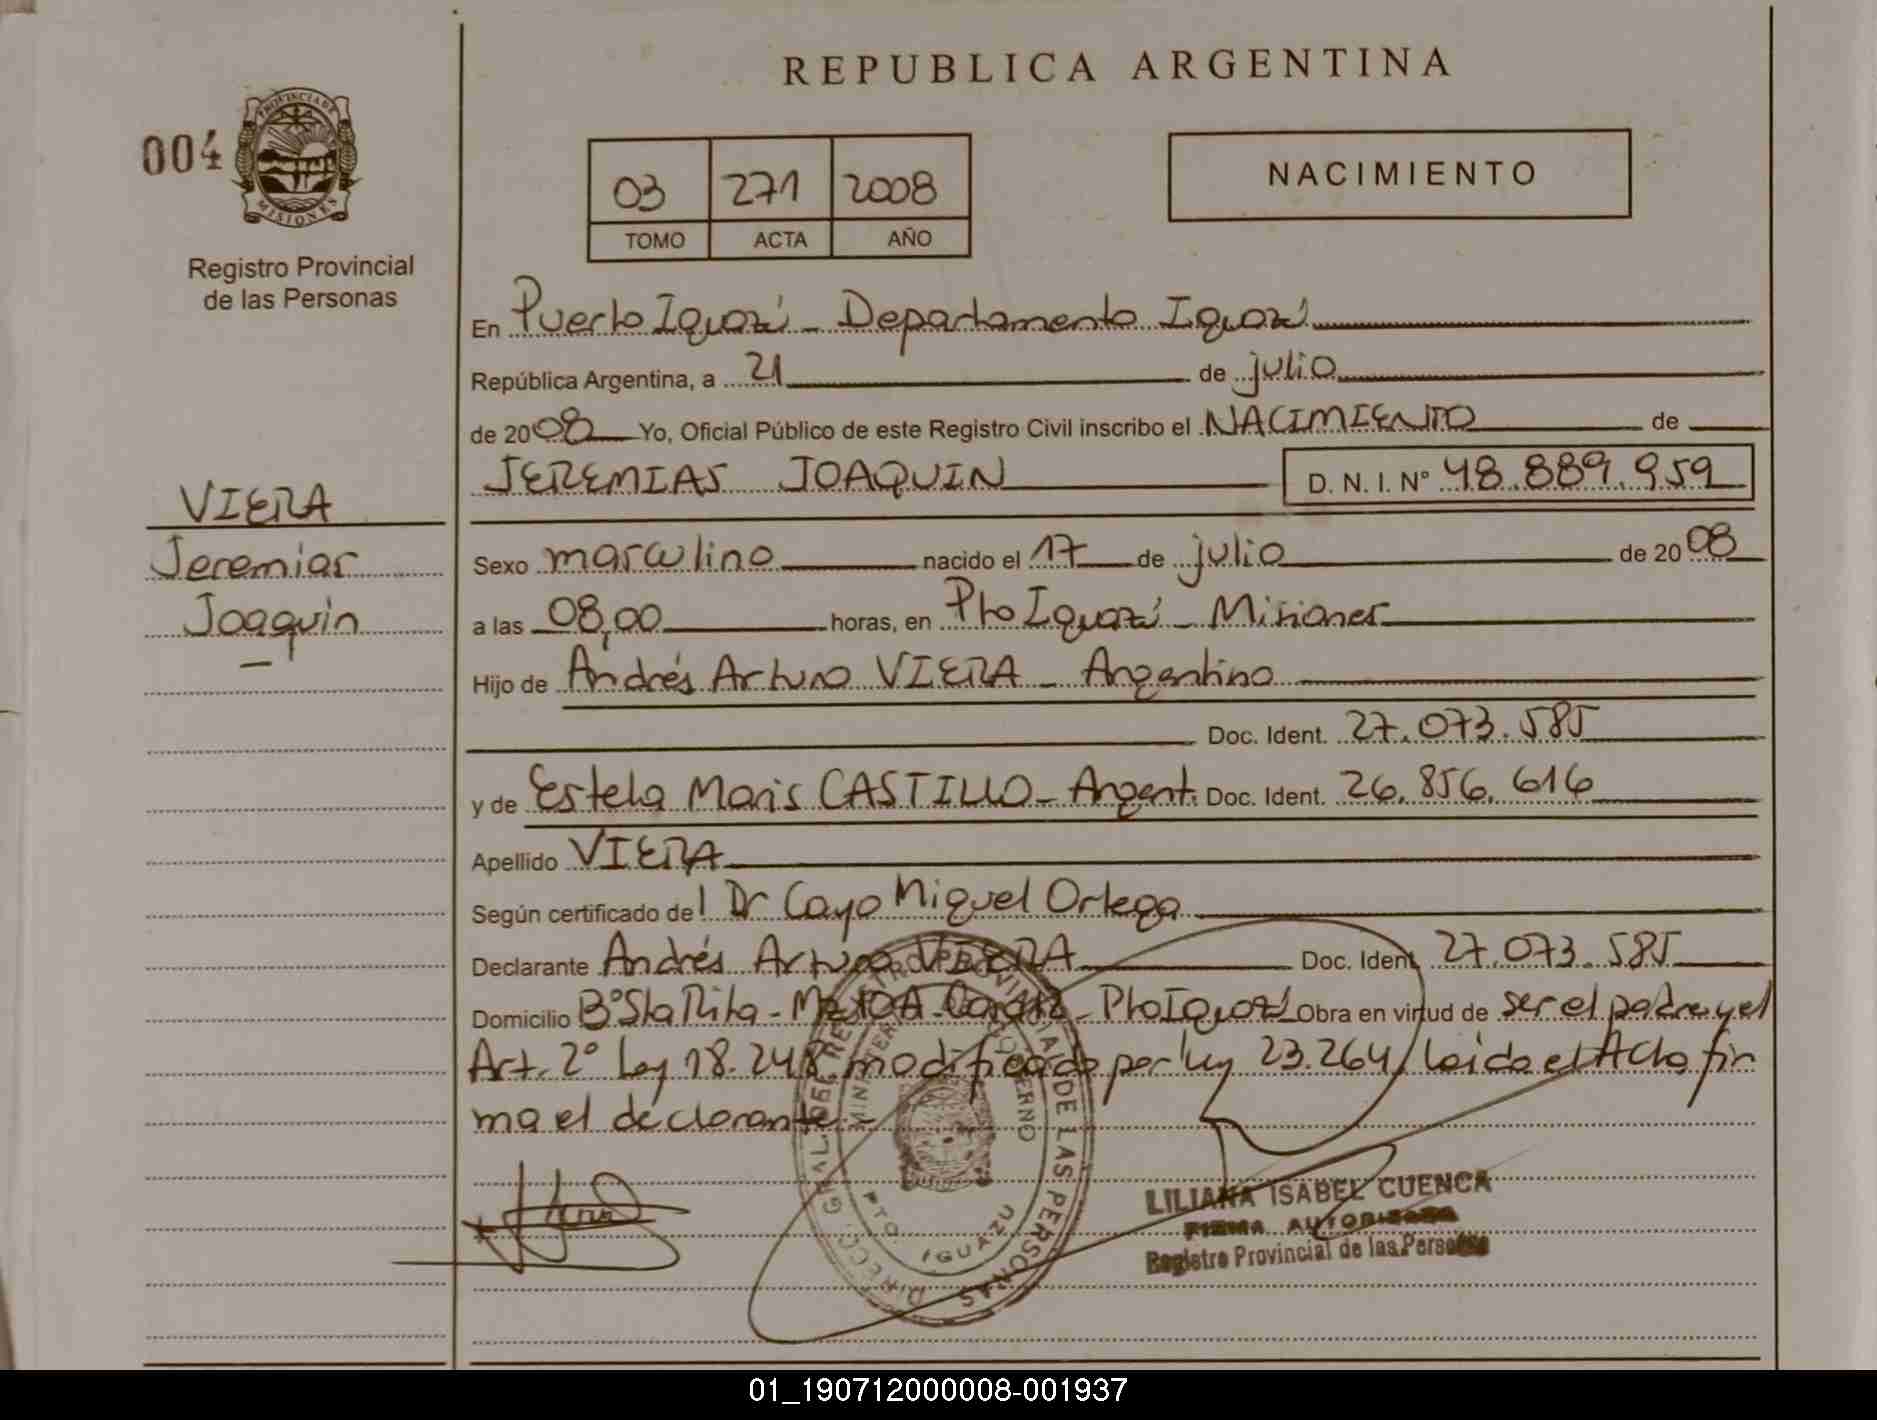 REPUBLICA ARGENTINA
004
PROVINCIA DE
MISIONES
Registro Provincial
de las Personas
03 271 2008
TOMO ACTA AÑO
NACIMIENTO
En Puerto Iguazú - Departamento Iguazú
República Argentina, a 21 de julio
de 2008 Yo, Oficial Público de este Registro Civil inscribo el NACIMIENTO de
JEREMIAS JOAQUIN D. N. I. Nº 48.889.959
VIERA
Jeremias
Joaquin
Sexo masculino nacido el 17 de julio de 2008
a las 08,00 horas, en Pto Iguazú - Misiones
Hijo de Andrés Arturo VIERA - Argentino
Doc. Ident. 27.073.585
y de Estela Maris CASTILLO - Argent. Doc. Ident. 26.856.616
Apellido VIERA
Según certificado del Dr Cayo Miguel Ortega
Declarante Andrés Arturo VIERA Doc. Ident. 27.073.585
Domicilio Bº Sta Rita - Mz 10A - Pto Iguazú Obra en virtud de ser el padre y el
Art. 2º Ley 18.248 modificado por ley 23.264 / Leida el Acta fir
ma el declarante -
DIRECC. GRAL. DE REGISTRO PROVINCIAL DE LAS PERSONAS
PTO IGUAZU
LILIANA ISABEL CUENCA
FIRMA AUTORIZADA
Registro Provincial de las Personas
01_190712000008-001937